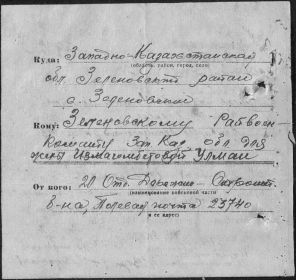 Куда: Западно-Казахстанской
(область, район, город, село)
обл. Зеленовский район
с. Зеленовское
Кому: Зеленовскому Райвоен-
комату Зап. Каз. обл. для
Улмаи
От кого: 20 Отд.
(наименование войсковой части
б-на, Полевая почта 23740
и ее адрес)